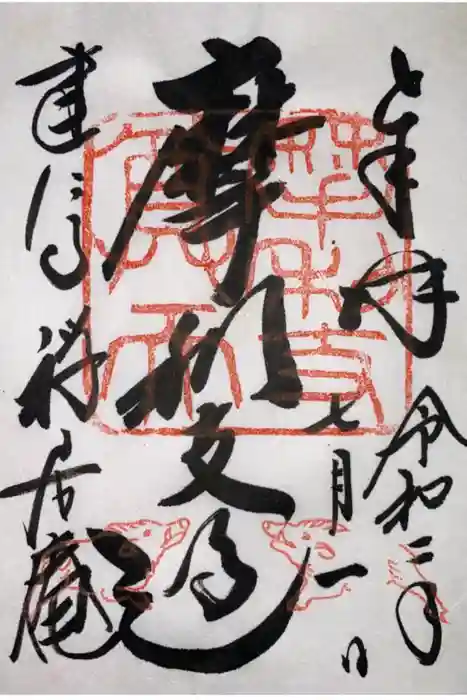 奉拝
令和二年
七月一日
摩利支
建仁寺
禅居庵